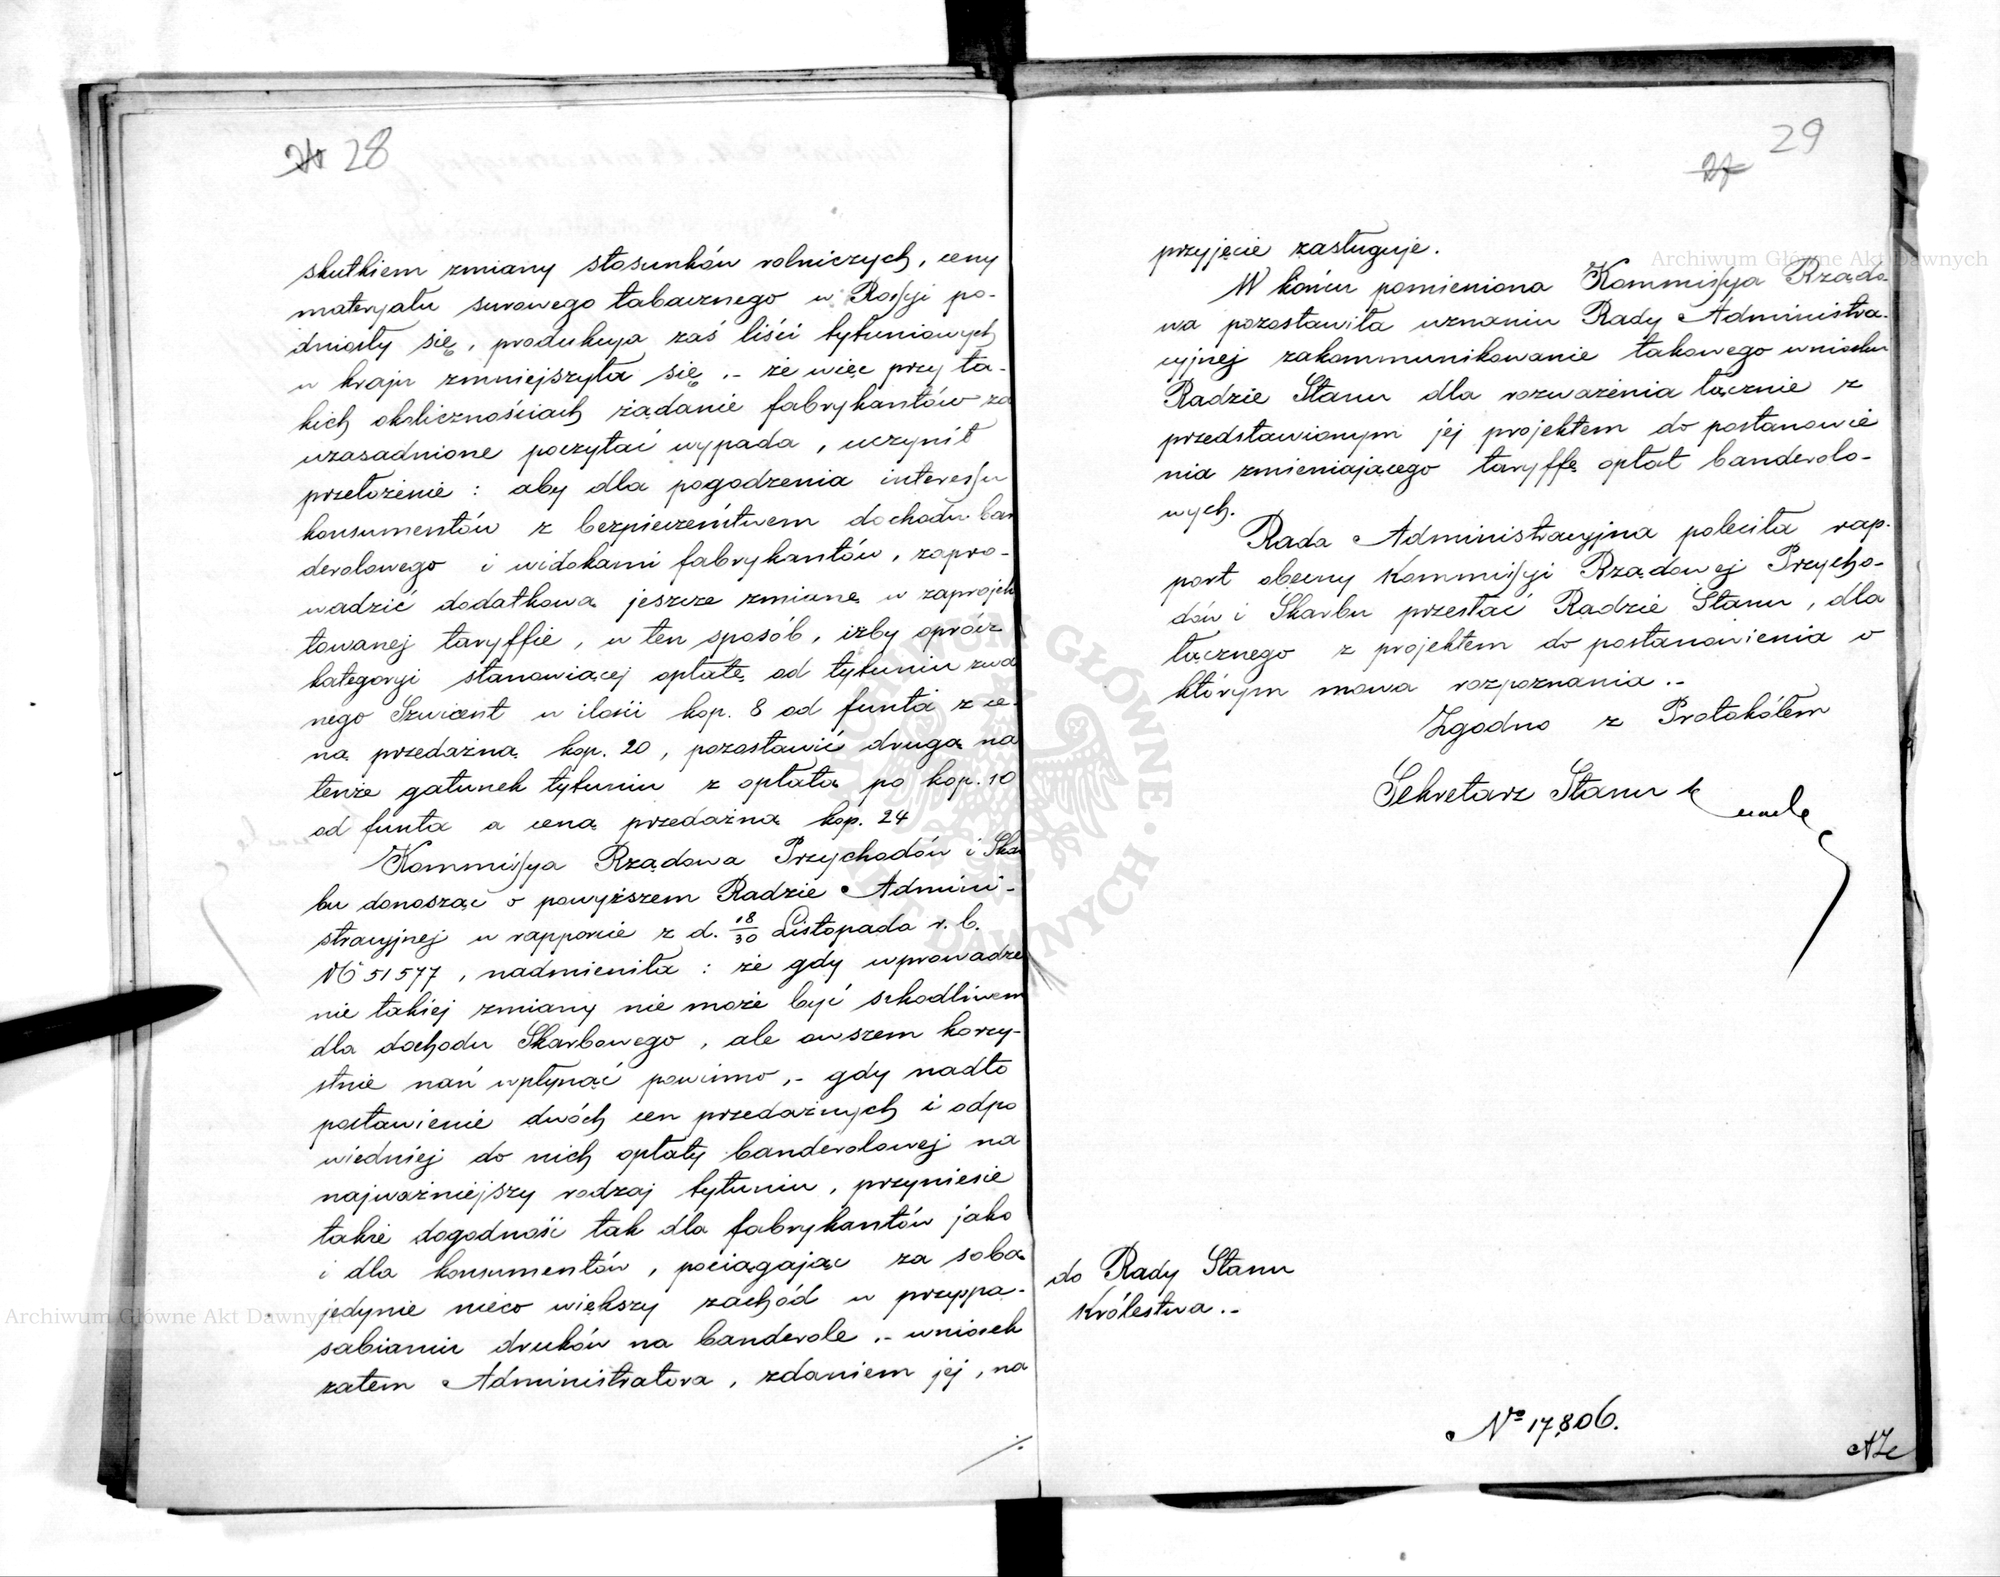 28
skutkiem zmiany stosunków rolniczych, ceny
materyału surowego tabacznego w Rossyi po-
dniosły się, produkcya zaś liści tytuniowych
w kraju zmniejszyła się .- że więc przy ta-
kich okolicznościach żądanie fabrykantów za
uzasadnione poczytać wypada, uczynił
przełożenie : aby dla pogodzenia interessu
konsumentów z bezpieczeństwem dochodu ban
derolowego i widokami fabrykantów, zapro-
wadzić dodatkową jeszcze zmianę w zaprojek
towanej taryffie, w ten sposób, iżby oprócz
kategoryi stanowiącej opłatę od tytuniu zwa
nego Szwicent w ilości kop. 8 od funta z ce-
ną przedażną kop. 20, pozostawić drugą na
tenże gatunek tytuniu z opłatą po kop. 10
od funta a ceną przedażną kop. 24
Kommissya Rządowa Przychodów i Skar
bu donosząc o powyższem Radzie Admini-
stracyjnej w rapporcie z d. 18/30 Listopada r. b.
№ 51577, nadmieniła : że gdy wprowadze
nie takiej zmiany nie może być szkodliwem
dla dochodu Skarbowego, ale owszem korzy-
stnie nań wpłynąć powinno,- gdy nadto
postawienie dwóch cen przedażnych i odpo
wiedniej do nich opłaty banderolowej na
najważniejszy rodzaj tytuniu, przyniesie
także dogodność tak dla fabrykantów jako
i dla konsumentów, pociągając za sobą
jedynie nieco większy zachód w przyspa-
sabianiu druków na banderole .- wniosek
zatem Administratora, zdaniem jej, na
./.
29
27
przyjęcie zasługuje.
W końcu pomieniona Kommissya Rządo-
wa pozostawiła uznaniu Rady Administra-
cyjnej zakommunikowanie takowego wniosku
Radzie Stanu dla rozważenia łącznie z
przedstawionym jej projektem do postanowie
nia zmieniającego taryffę opłat banderolo-
wych.
Rada Administracyjna poleciła rap-
port obecny Kommissyi Rządowej Przycho-
dów i Skarbu przesłać Radzie Stanu, dla
łącznego z projektem do postanowienia o
którym mowa rozpoznania .-
Zgodno z Protokółem
Sekretarz Stanu
do Rady Stanu
Królestwa .-
Nº 17,806.
Archiwum Główne Akt Dawnych
Archiwum Główne Akt Dawnych
ARCHIWUM GŁÓWNE · AKT DAWNYCH ·